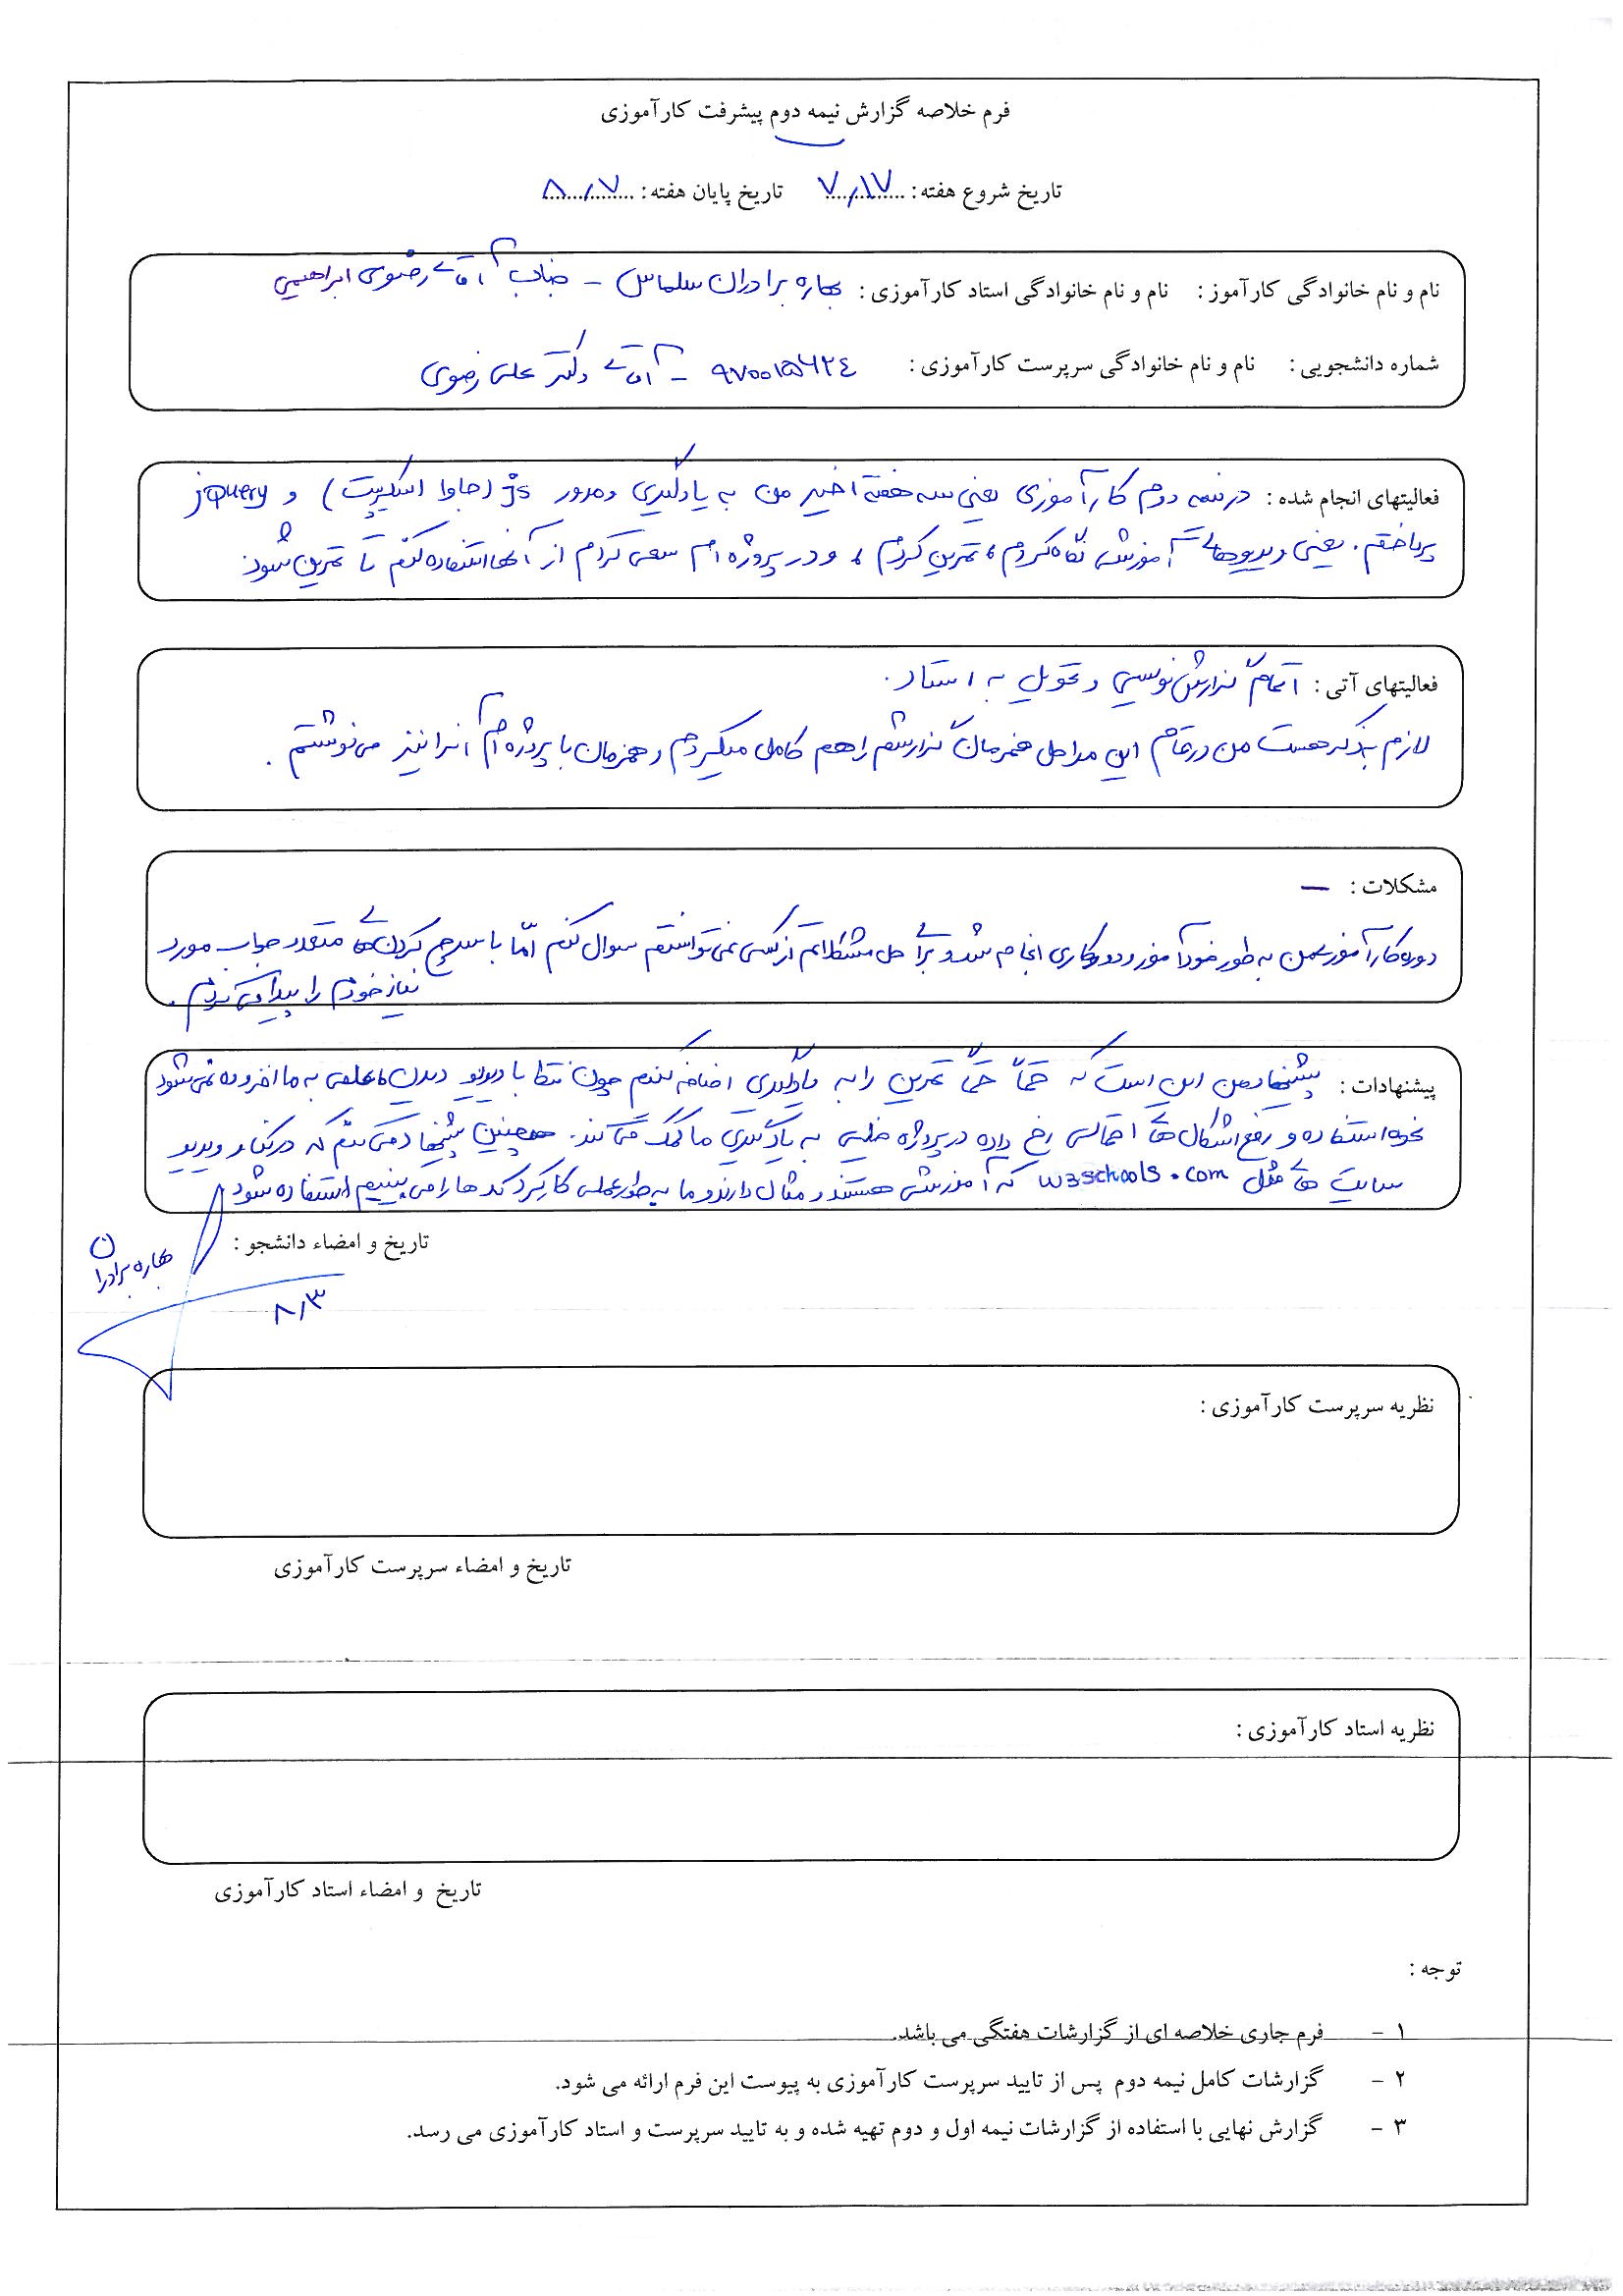 فرم خلاصه گزارش نیمه دوم پیشرفت کارآموزی
تاریخ شروع هفته : ۷/۱۷ تاریخ پایان هفته : ۸/۷
نام و نام خانوادگی کارآموز : نام و نام خانوادگی استاد کارآموزی : بهاره برادران سلماس – جناب آقای رضوی ابراهیمی
شماره دانشجویی : نام و نام خانوادگی سرپرست کارآموزی : ۹۷۰۰۱۵۶۲۴ – آقای دکتر علی رضوی
فعالیتهای انجام شده : در نیمه دوم کارآموزی یعنی سه هفته اخیر من به یادگیری و مرور js (جاوا اسکریپت) و jQuery
پرداختم. یعنی ویدیوهای آموزشی نگاه کردم، تمرین کردم، و در پروژه ام سعی کردم از آنها استفاده کنم تا تمرین شود
فعالیتهای آتی : اتمام گزارش نویسی و تحویل به استاد.
لازم بذکر هست من در تمام این مراحل همزمان گزارشم را هم کامل میکردم و همزمان با پروژه ام آنرا نیز می نوشتم.
مشکلات : –
دوره کارآموزی من به طور خودآموز و دورکاری انجام شد و برای حل مشکلاتم از کسی نمی توانستم سوال کنم امّا با سرچ کردن های متعدد جواب مورد
نیاز خودم را پیدا می کردم.
پیشنهادات : پیشنهاد من این است که حتماً حتماً تمرین را به یادگیری اضافه کنیم چون تنها با ویدیو دیدن، علمی به ما افزوده نمی شود
نحوه استفاده و رفع اشکال های احتمالی رخ داده در پروژه خیلی به یادگیری ما کمک می کند. همچنین پیشنهاد می کنم که در کنار ویدیو
سایت های مثل w3schools.com که آموزشی هستند و مثال دارند و ما به طور عملی کارکرد کدها را می بینیم استفاده شود
تاریخ و امضاء دانشجو :
بهاره برادران
۸/۳
نظریه سرپرست کارآموزی :
تاریخ و امضاء سرپرست کارآموزی
نظریه استاد کارآموزی :
تاریخ و امضاء استاد کارآموزی
توجه :
۱ – فرم جاری خلاصه ای از گزارشات هفتگی می باشد.
۲ – گزارشات کامل نیمه دوم پس از تایید سرپرست کارآموزی به پیوست این فرم ارائه می شود.
۳ – گزارش نهایی با استفاده از گزارشات نیمه اول و دوم تهیه شده و به تایید سرپرست و استاد کارآموزی می رسد.